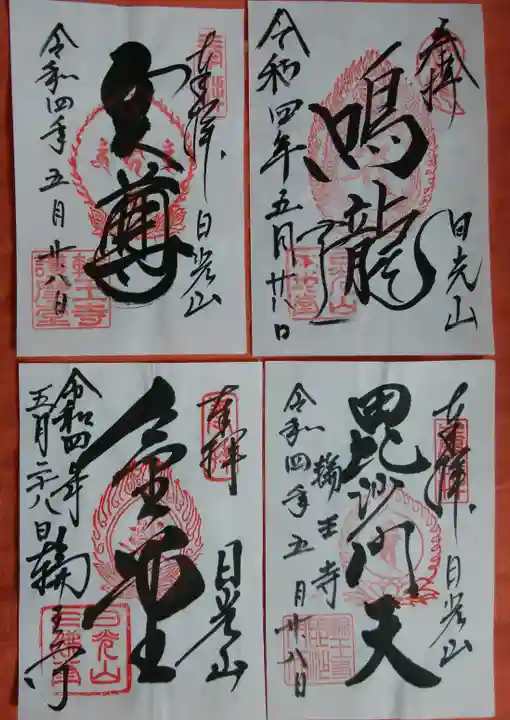 奉拝
日光山
尊
令和四年五月廿八日
輪王寺
護摩堂
奉拝
日光山
鳴龍
令和四年五月廿八日
奉拝
日光山
令和四年
五月二十八日
輪王寺
奉拝
日光山
毘沙門天
輪王寺
令和四年五月廿八日